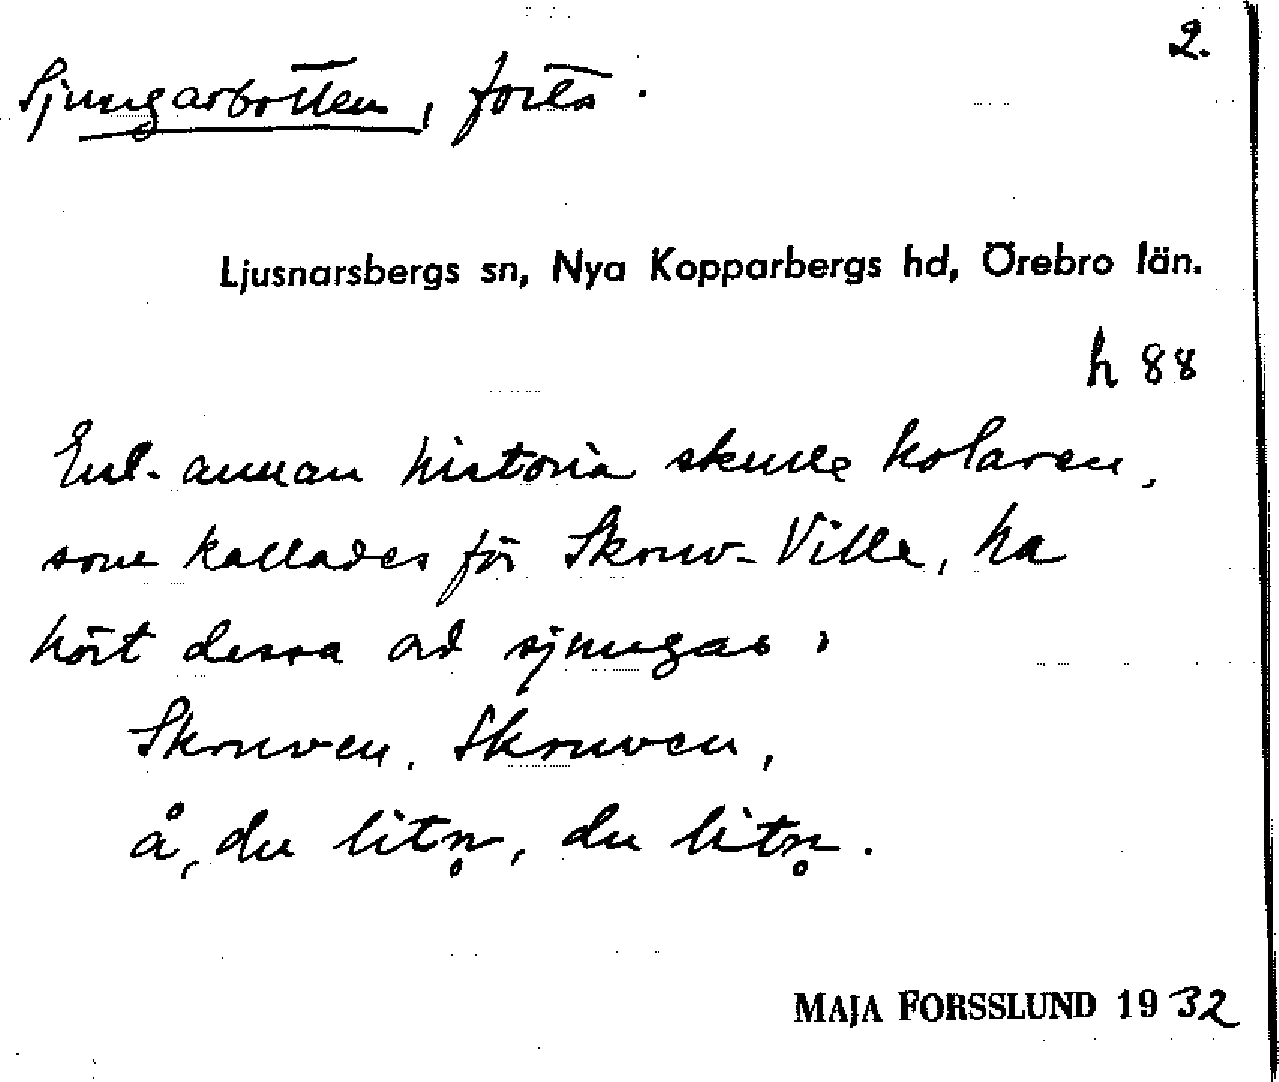 2.
Sjungarbotten, forts.
Ljusnarsbergs sn, Nya Kopparbergs hd, Örebro län.
h 88
Enl. annan historia skulle kolaren,
som kallades för Skruv-Ville, ha
hört dessa ord sjungas:
Skruven, Skruven,
å, du litn̥, du litn̥.
MAJA FORSSLUND 1932